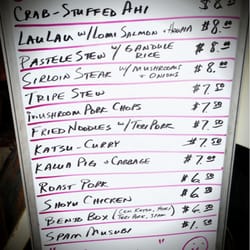 CRAB-STUFFED AHI $8.00
LAULAU W/ LOMI SALMON + HAUPIA $8.00
PASTELE STEW W/ GANDULE RICE $8.00
SIRLOIN STEAK W/ MUSHROOMS + ONIONS $8.00
TRIPE STEW $7.50
MUSHROOM PORK CHOPS $7.50
FRIED NOODLES W/ TERI PORK $7.50
KATSU-CURRY $7.50
KALUA PIG + CABBAGE $7.50
ROAST PORK $6.50
SHOYU CHICKEN $6.50
BENTO BOX (CKN KATSU, MAHI, TERI PORK, SPAM) $6.50
SPAM MUSUBI